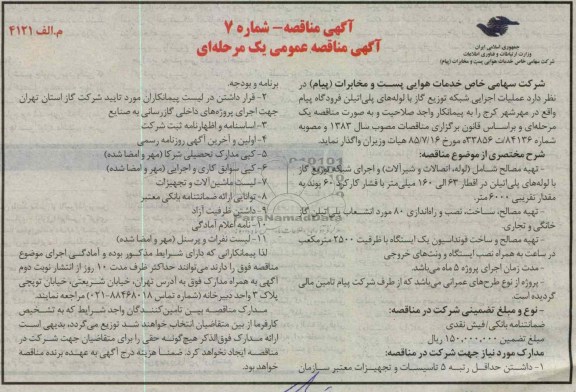 آگهی مناقصه- شماره ۷
آگهی مناقصه عمومی یک مرحله‌ای
م.الف ۴۱۲۱
جمهوری اسلامی ایران
وزارت ارتباطات و فناوری اطلاعات
شرکت سهامی خاص خدمات هوایی پست و مخابرات (پیام)
شرکت سهامی خاص خدمات هوایی پست و مخابرات (پیام) در
نظر دارد عملیات اجرایی شبکه توزیع گاز با لوله‌های پلی‌اتیلن فرودگاه پیام
واقع در مهرشهر کرج را به پیمانکار واجد صلاحیت و به صورت مناقصه یک
مرحله‌ای و براساس قانون برگزاری مناقصات مصوب سال ۱۳۸۳ و مصوبه
شماره ۸۴۱۳۶/ت ۳۳۸۵۶ه مورخ ۸۵/۷/۱۶ هیات وزیران واگذار نماید.
شرح مختصری از موضوع مناقصه:
- تهیه مصالح شامل (لوله، اتصالات و شیرآلات) و اجرای شبکه توزیع گاز
با لوله‌های پلی‌اتیلن در اقطار ۶۳ الی ۱۶۰ میلی‌متر با فشار کارکرد ۶۰ پوند به
مقدار تقریبی ۶۰۰۰ متر.
- تهیه مصالح، ساخت، نصب و راه‌اندازی ۸۰ مورد انشعاب پلی‌اتیلن گاز
خانگی و تجاری.
- تهیه مصالح و ساخت فونداسیون یک ایستگاه با ظرفیت ۲۵۰۰ مترمکعب
در ساعت به همراه نصب ایستگاه و ونت‌های خروجی
- مدت زمان اجرای پروژه ۵ ماه می‌باشد.
- پروژه از نوع طرح‌های عمرانی می‌باشد که از طرف شرکت پیام تامین مالی
گردیده است.
- نوع و مبلغ تضمینی شرکت در مناقصه:
ضمانتنامه بانکی/فیش نقدی
مبلغ تضمین ۱۵۰.۰۰۰.۰۰۰ ریال
مدارک مورد نیاز جهت شرکت در مناقصه:
۱- داشتن حداقل رتبه ۵ تاسیسات و تجهیزات معتبر سازمان
برنامه و بودجه.
۲- قرار داشتن در لیست پیمانکاران مورد تایید شرکت گاز استان تهران
جهت اجرای پروژه‌های داخلی گازرسانی به صنایع
۳- اساسنامه و اظهارنامه ثبت شرکت
۴- اولین و آخرین آگهی روزنامه رسمی
۵- کپی مدارک تحصیلی شرکا (مهر و امضا شده)
۶- کپی سوابق کاری و اجرایی (مهر و امضا شده)
۷- لیست ماشین‌آلات و تجهیزات
۸- توانایی ارائه ضمانتنامه بانکی معتبر
۹- داشتن ظرفیت آزاد
۱۰- نامه اعلام آمادگی
۱۱- لیست نفرات و پرسنل (مهر و امضا شده)
لذا پیمانکارانی که دارای شرایط مذکور بوده و آمادگی اجرای موضوع
مناقصه فوق را دارند می‌توانند حداکثر ظرف مدت ۱۰ روز از انتشار نوبت دوم
آگهی به همراه مدارک فوق به آدرس تهران، خیابان شریعتی، خیابان توپچی
پلاک ۳ واحد دبیرخانه (شماره تماس ۸۸۴۶۸۰۱۸-۰۲۱) مراجعه نمایند.
مدارک مناقصه بین تامین‌کنندگان واجد شرایط که به تشخیص
کارفرما از بین متقاضیان انتخاب خواهند شد توزیع می‌گردد، بدیهی است
ارائه مدارک فوق‌الذکر هیچ‌گونه حقی را برای متقاضیان جهت شرکت در
مناقصه ایجاد نخواهد کرد. ضمناً هزینه درج آگهی به عهده برنده مناقصه
خواهد بود.
ParsNamadData